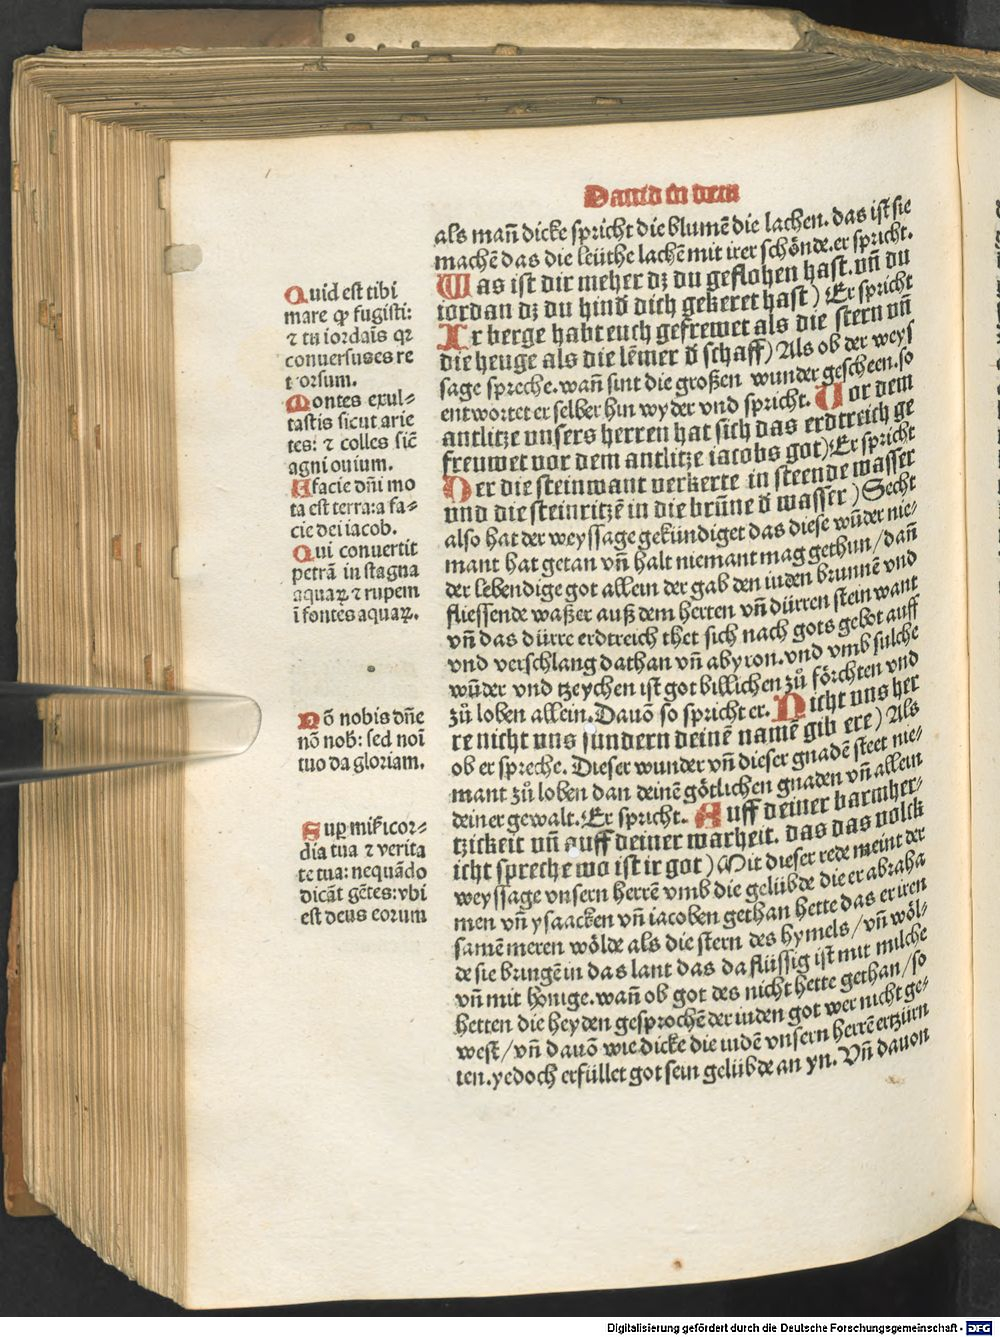 Dauid in dem
als man̄ dicke spricht die blumē die lachen. das ist sie
machē das die leüthe lachē mit irer schönde. er spricht.
Was ist dir meher dz du geflohen hast. vn̄ du
iordan dz du hind̄ dich gekeret hast) Er spricht
Ir berge habt euch gefrewet als die stern vn̄
die heuge als die lēmer d̄ schaff) Als ob der weys
sage spreche. wan̄ sint die großen wunder gescheen. so
entwortet er selber hin wyder vnd spricht. Uor dem
antlitze unsers herren hat sich das erdtreich ge
freuwet vor dem antlitze iacobs got) Er spricht
Der die steinwant verkerte in steende wasser
vnd die steinritzē in die brūne d̄ wasser) Secht
also hat der weyssage gekündiget das diese wūder nie⸗
mant hat getan vn̄ halt niemant mag gethun/ dan̄
der lebendige got allein der gab den iuden brunnē vnd
fliessende waßer auß dem herten vn̄ dürren stein want
vn̄ das dürre erdtreich thet sich nach gots gebot auff
vnd verschlang dathan vn̄ abyron. vnd vmb sulche
wūder vnd tzeychen ist got billichen zů förchten vnd
zů loben allein. Dauō so spricht er. Nicht uns her
re nicht uns sundern deinē namē gib ere) Als
ob er spreche. Dieser wunder vn̄ dieser gnadē steet nie⸗
mant zů loben dan deinē götlichen gnaden vn̄ allein
deiner gewalt. Er spricht. Auff deiner barmher⸗
tzitkeit vn̄ auff deiner warheit. das das volck
icht spreche wo ist ir got) Mit dieser rede meint der
weyssage vnsern herrē vmb die gelübde die er abraha
men vn̄ ysaacken vn̄ iacoben gethan hette das er iren
samē meren wölde als die stern des hymels/ vn̄ wöl⸗
de sie bringē in das lant das da flüssig ist mit milche
vn̄ mit honige. wan̄ ob got des nicht hette gethan/ so
hetten die heyden gesprochē der iuden got wer nicht ge⸗
west/ vn̄ dauō wie dicke die iudē vnsern herrē ertzürn
ten. yedoch erfüllet got sein gelübde an yn. Vn̄ dauon
Quid est tibi
mare ꝙ fugisti:
⁊ tu iordaīs qꝛ
conuersus es re
trorsum.
Montes exul⸗
tastis sicut arie
tes: ⁊ colles sic̄
agni ouium.
A facie dn̄i mo
ta est terra: a fa⸗
cie dei iacob.
Qui conuertit
petrā in stagna
aquaꝝ ⁊ rupem
ī fontes aquaꝝ.
Nō nobis dn̄e
nō nob̄: sed noī
tuo da gloriam.
Sup̱ mīsicor⸗
dia tua ⁊ verita
te tua: nequādo
dicāt gētes: vbi
est deus eorum
Digitalisierung gefördert durch die Deutsche Forschungsgemeinschaft - DFG